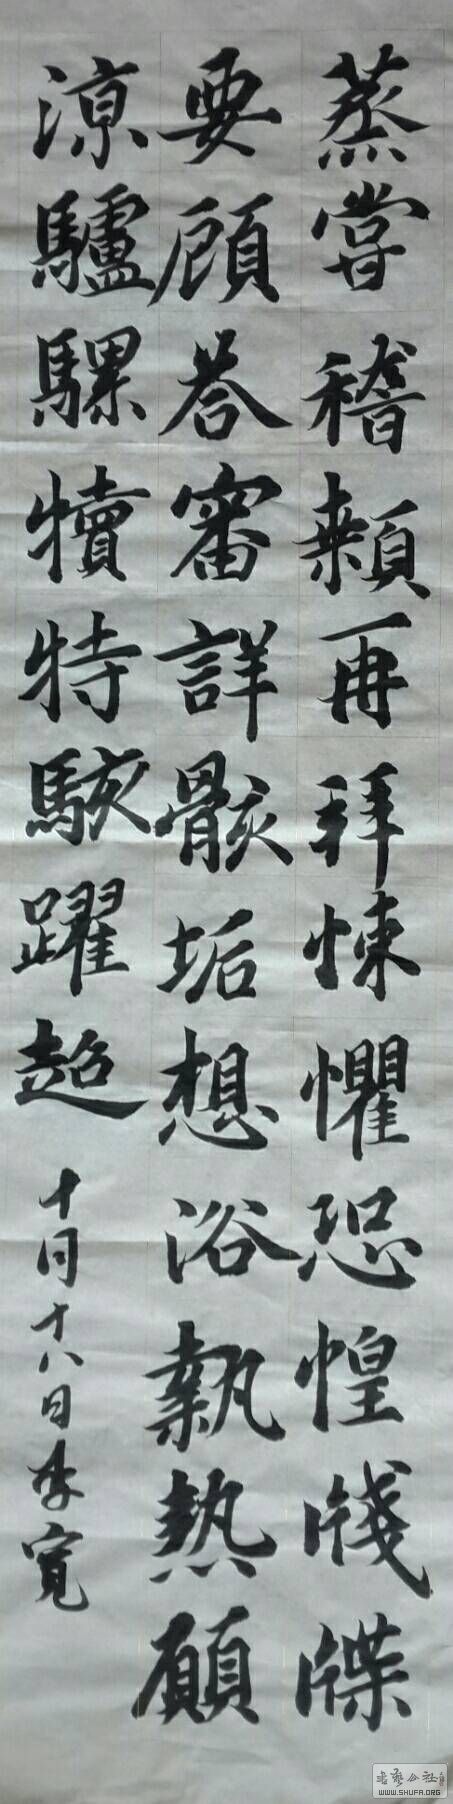 蒸甞稽顙再拜悚懼恐惶牋牒
要顧荅審詳骸垢想浴執熱願
涼驢騾犢特駭躍超
十月十八日李寬
书艺公社
WWW.SHUFA.ORG